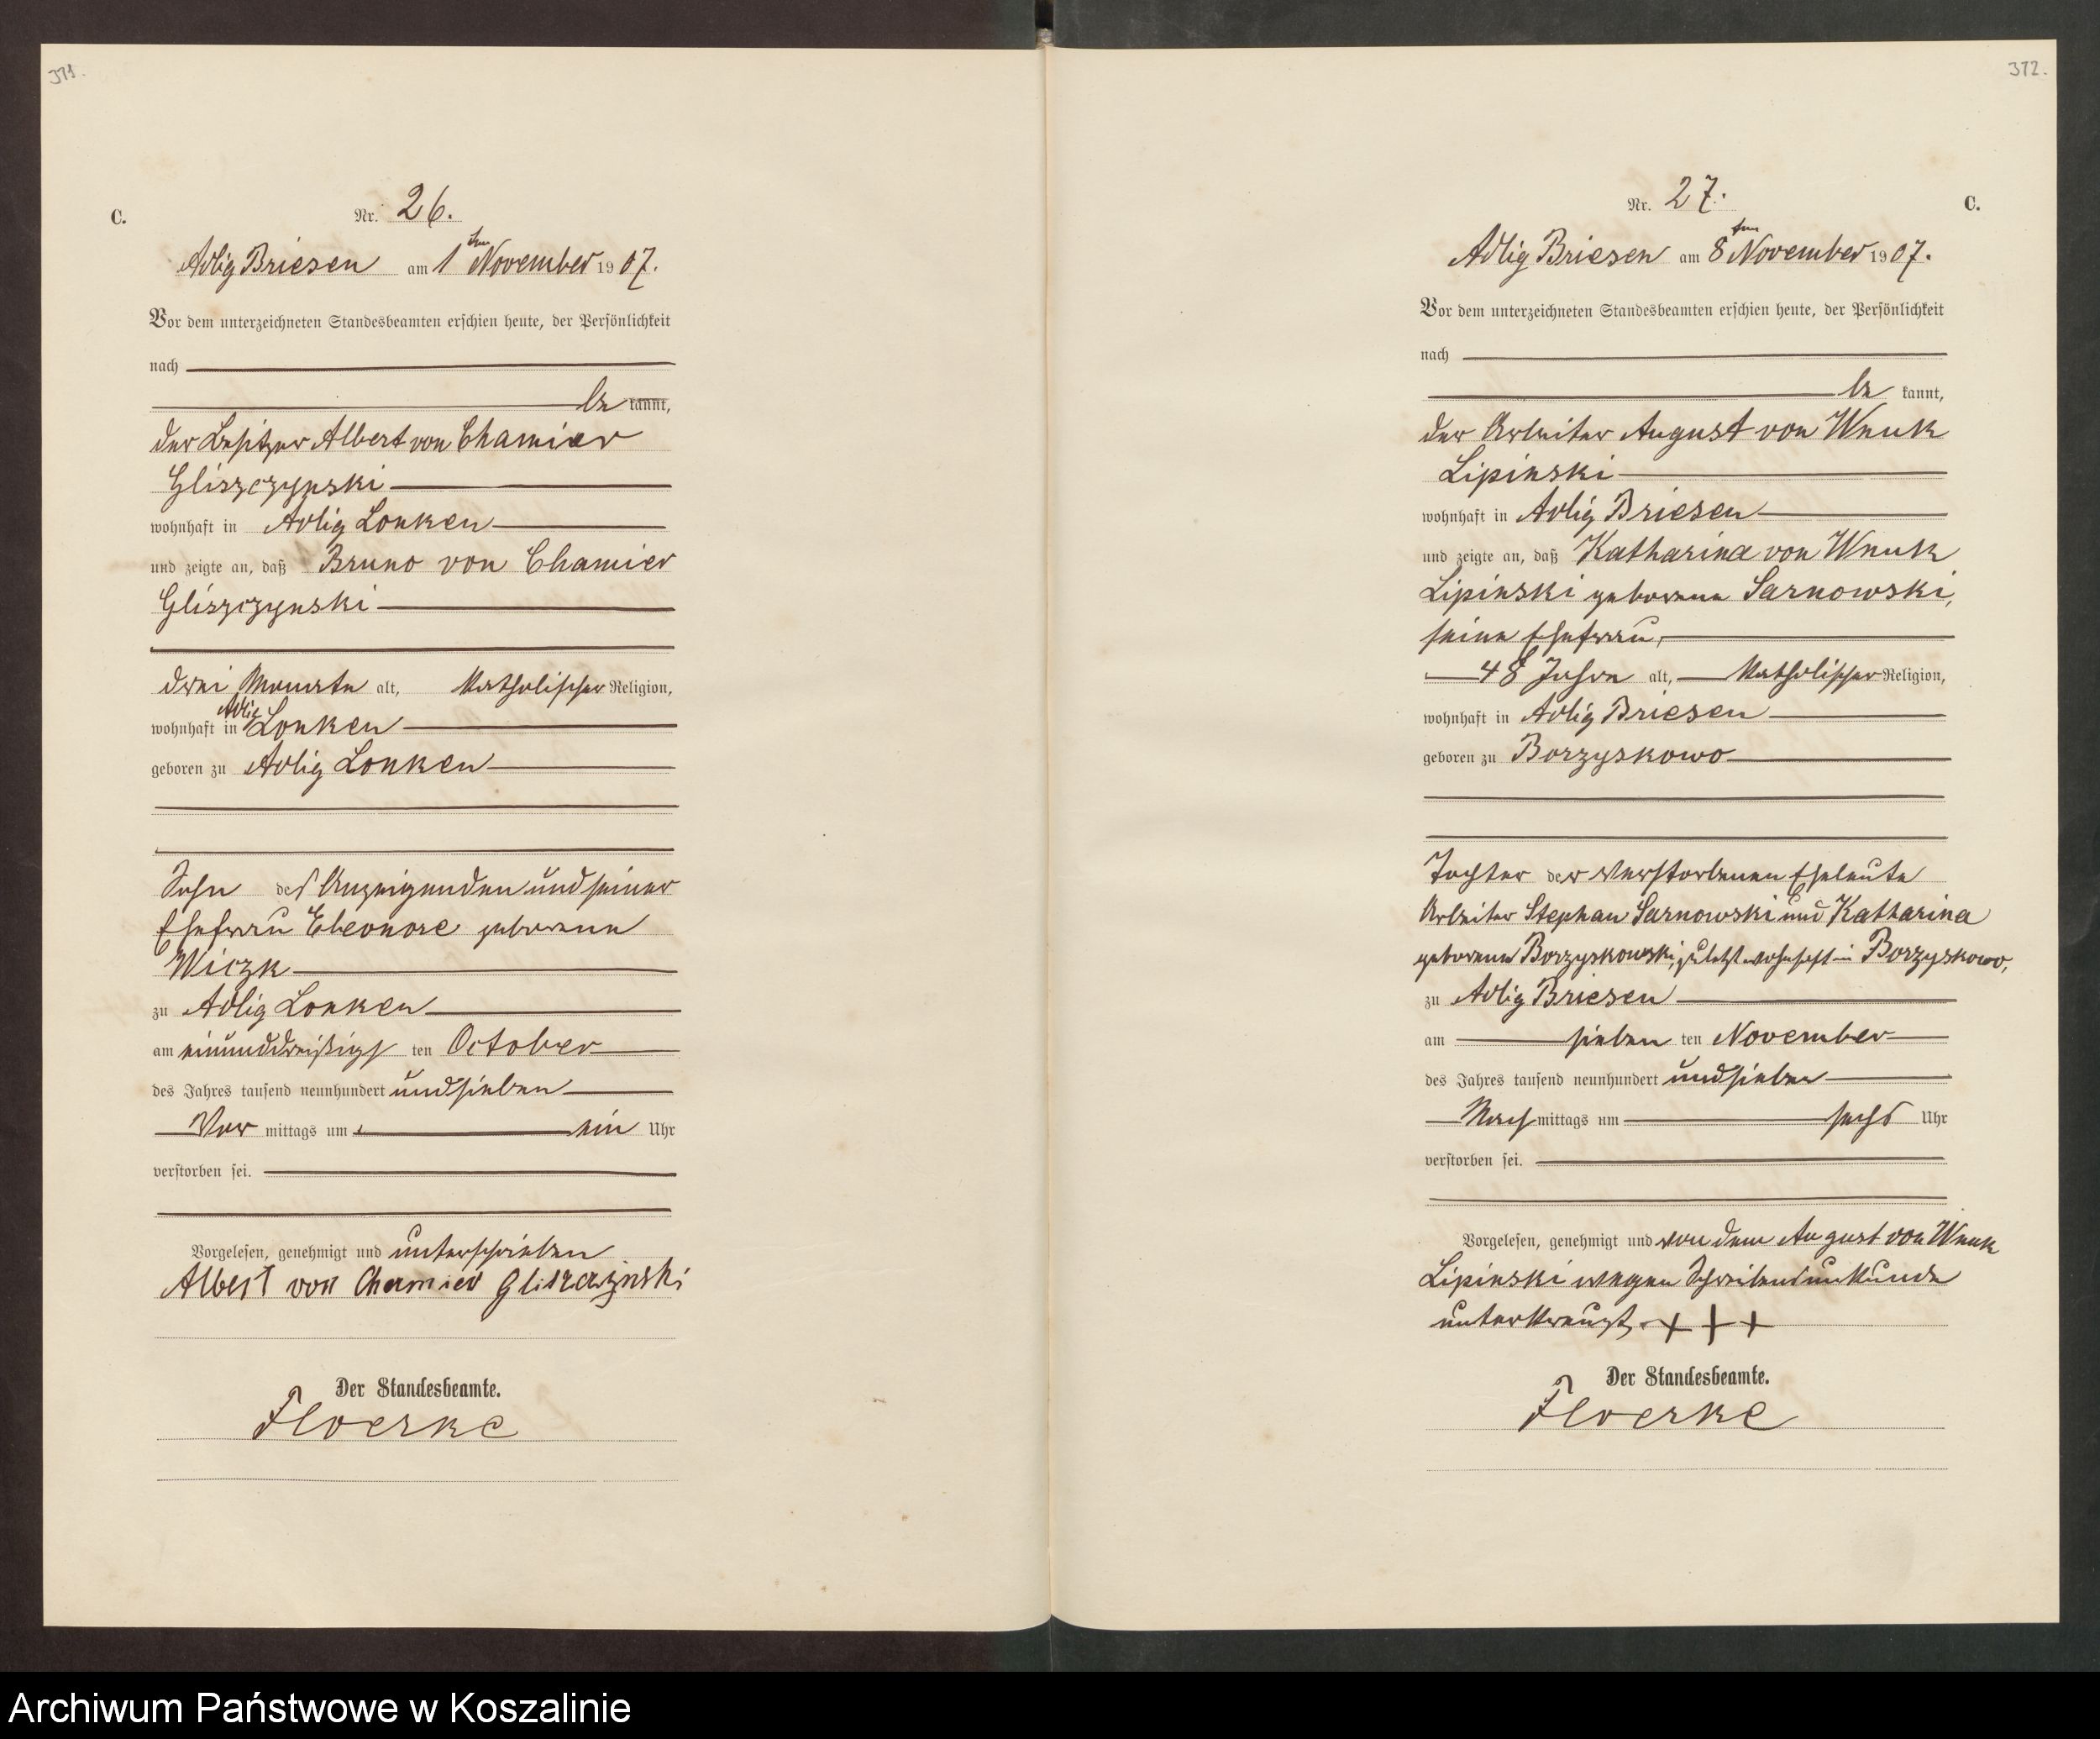 371.
C.
Nr. 26.
Adlig Briesen am 1ten November 1907.
Vor dem unterzeichneten Standesbeamten erschien heute, der Persönlichkeit
nach
be kannt,
der Besitzer Albert von Chamier
Gliszczynski
wohnhaft in Adlig Lonken
und zeigte an, daß Bruno von Chamier
Gliszczynski
drei Monate alt, katholischer Religion,
wohnhaft in Adlig Lonken
geboren zu Adlig Lonken
Sohn des Anzeigenden und seiner
Ehefrau Eleonore geborene
Wiczk
zu Adlig Lonken
am einunddreißigs ten October
des Jahres tausend neunhundert undsieben
Vor mittags um ein Uhr
verstorben sei.
Vorgelesen, genehmigt und unterschrieben
Albert von Chamier Gliszczynski
Der Standesbeamte.
Floerke
372.
Nr. 27.
C.
Adlig Briesen am 8ten November 1907.
Vor dem unterzeichneten Standesbeamten erschien heute, der Persönlichkeit
nach
be kannt,
der Arbeiter August von Wnuk
Lipinski
wohnhaft in Adlig Briesen
und zeigte an, daß Katharina von Wnuk
Lipinski geborene Sarnowski,
seine Ehefrau,
48 Jahre alt, katholischer Religion,
wohnhaft in Adlig Briesen
geboren zu Borzyskowo
Tochter der verstorbenen Eheleute
Arbeiter Stephan Sarnowski und Katharina
geborene Borzyskowski, zuletzt wohnhaft in Borzyskowo,
zu Adlig Briesen
am sieben ten November
des Jahres tausend neunhundert undsieben
Nach mittags um sechs Uhr
verstorben sei.
Vorgelesen, genehmigt und von dem August von Wnuk
Lipinski wegen Schreibensunkunde
unterkreuzt. +++
Der Standesbeamte.
Floerke
Archiwum Państwowe w Koszalinie